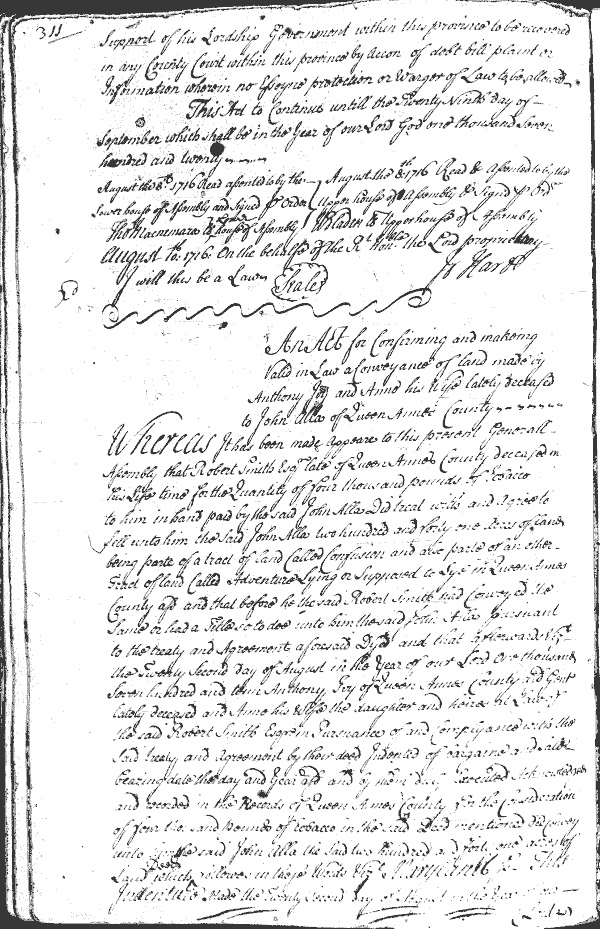 311
Support of his Lordship Government within this province to be recovered
in any County Court within this province by Accon of debt bill plaint or
Information wherein no Essoyne protection or Wager of Law to be allowed
This Act to Continue untill the Twenty Ninth day of
September which shall be in the Year of our Lord God one thousand seven
hundred and twenty
August the 8th 1716 Read assented to by the
Lower house of Assembly and signed p Order
Tho Macnemara Cl house of Assembly
August the 8th 1716 Read & Assented to by the
Upper house of Assembly & Signd p Ordr
W Bladen Cl Upper house of Assembly
August 10th 1716. On the behalfe of the Rt Honble the Lord proprietary
I will this be a Law
Seale
Jo Hart
An Act for Confirming and makeing
Valid in Law a Conveyance of land made by
Anthony Ivy and Anne his Wife lately deceased
to John Alla of Queen Annes County
Whereas It has been made appeare to this present Generall
Assembly that Robert Smith Esqr late of Queen Annes County deceased in
his Life time for the Quantity of four thousand pounds of Tobacco
to him in hand paid by the said John Alla Did treat with and Agree to
sell unto him the said John Alla two hundred and forty one Acres of land
being parte of a tract of land Called Confusion and also parte of an other
Tract of land Called Adventure Lying or Supposed to Lye in Queen Annes
County afd and that before he the said Robert Smith had Conveyed the
Same or had a Title so to doe unto him the said John Alla pursuant
to the treaty and Agreement aforesaid Dyed and that afterwards Vizt
the Twenty Second day of August in the Year of our Lord One thousand
Seven hundred and Anthony Ivy of Queen Annes County afd Gent
lately deceased and Anne his Wife the daughter and heire at Law of
the said Robert Smith Esqr in Pursuance of and Complyance with the
Said treaty and Agreement by their deed Indented of bargaine and sale
bearing date the day and Year afd and by them duly Executed Acknowledged
and recorded in the Records of Queen Annes County for the Consideration
of four thousand pounds of Tobacco in the said Deed mentioned did Convey
unto the said John Alla the said two hundred and forty one acres of
Land which Deed followes in these Words Vizt Maryland ss This
Indenture Made the Twenty Second day of August in the Year of our